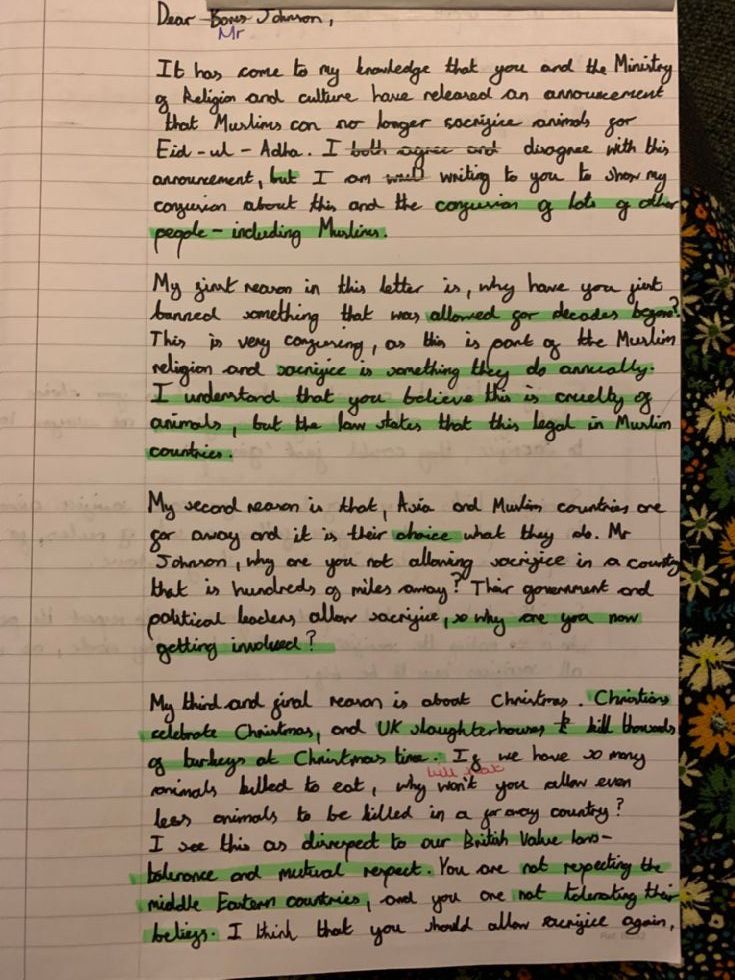 Dear Boris Johnson,
Mr
It has come to my knowledge that you and the Ministry
of Religion and culture have released an announcement
that Muslims can no longer sacrifice animals for
Eid-ul-Adha. I both agree and disagree with this
announcement, but I am writing to you to show my
confusion about this and the confusion of lots of other
people - including Muslims.
My first reason in this letter is, why have you just
banned something that was allowed for decades before?
This is very confusing, as this is part of the Muslim
religion and sacrifice is something they do annually.
I understand that you believe this is cruelty of
animals, but the law states that this legal in Muslim
countries.
My second reason is that, Asia and Muslim countries are
far away and it is their choice what they do. Mr
Johnson, why are you not allowing sacrifice in a country
that is hundreds of miles away? Their government and
political leaders allow sacrifice, so why are you now
getting involved?
My third and final reason is about Christmas. Christians
celebrate Christmas, and UK slaughterhouses kill thousands
of turkeys at Christmas time. If we have so many
animals killed to eat, why won't you allow even
less animals to be killed in a far away country?
I see this as disrespect to our British Value laws-
tolerance and mutual respect. You are not respecting the
middle Eastern countries, and you are not tolerating their
beliefs. I think that you should allow sacrifice again,